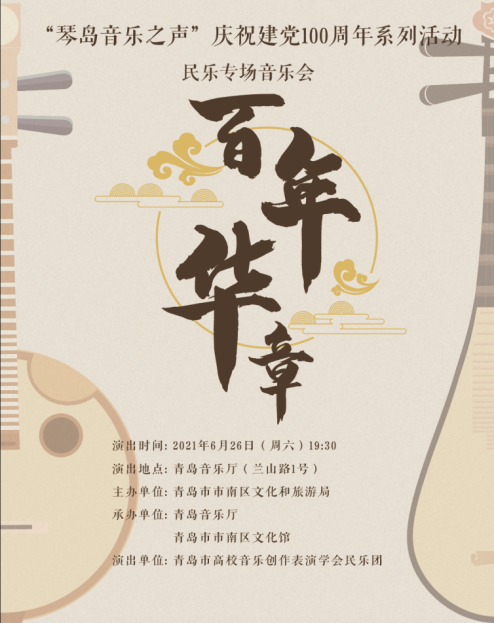 “琴岛音乐之声”庆祝建党100周年系列活动
民乐专场音乐会
百年
华章
演出时间：2021年6月26日（周六）19:30
演出地点：青岛音乐厅（兰山路1号）
主办单位：青岛市市南区文化和旅游局
承办单位：青岛音乐厅
青岛市市南区文化馆
演出单位：青岛市高校音乐创作表演学会民乐团